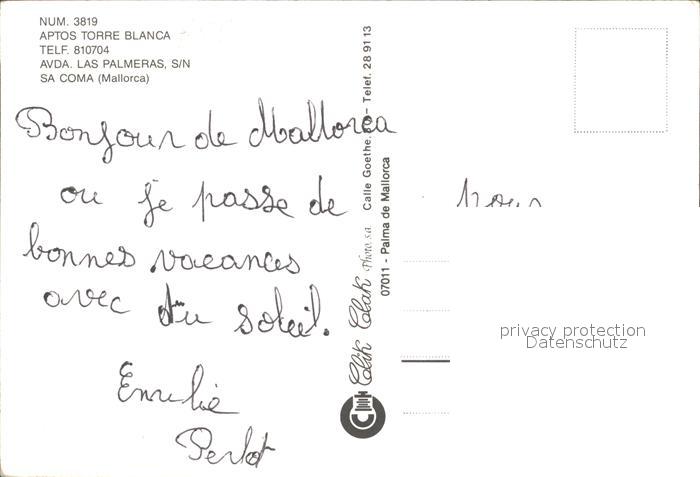 NUM. 3819
APTOS TORRE BLANCA
TELF. 810704
AVDA. LAS PALMERAS, S/N
SA COMA (Mallorca)
Bonjour de Mallorca
ou je passe de
bonnes vacances
avec du soleil.
Emilie
Perlot
Clik Clak Photo, s.a. Calle Goethe, Telef. 28 91 13
07011 - Palma de Mallorca
privacy protection
Datenschutz